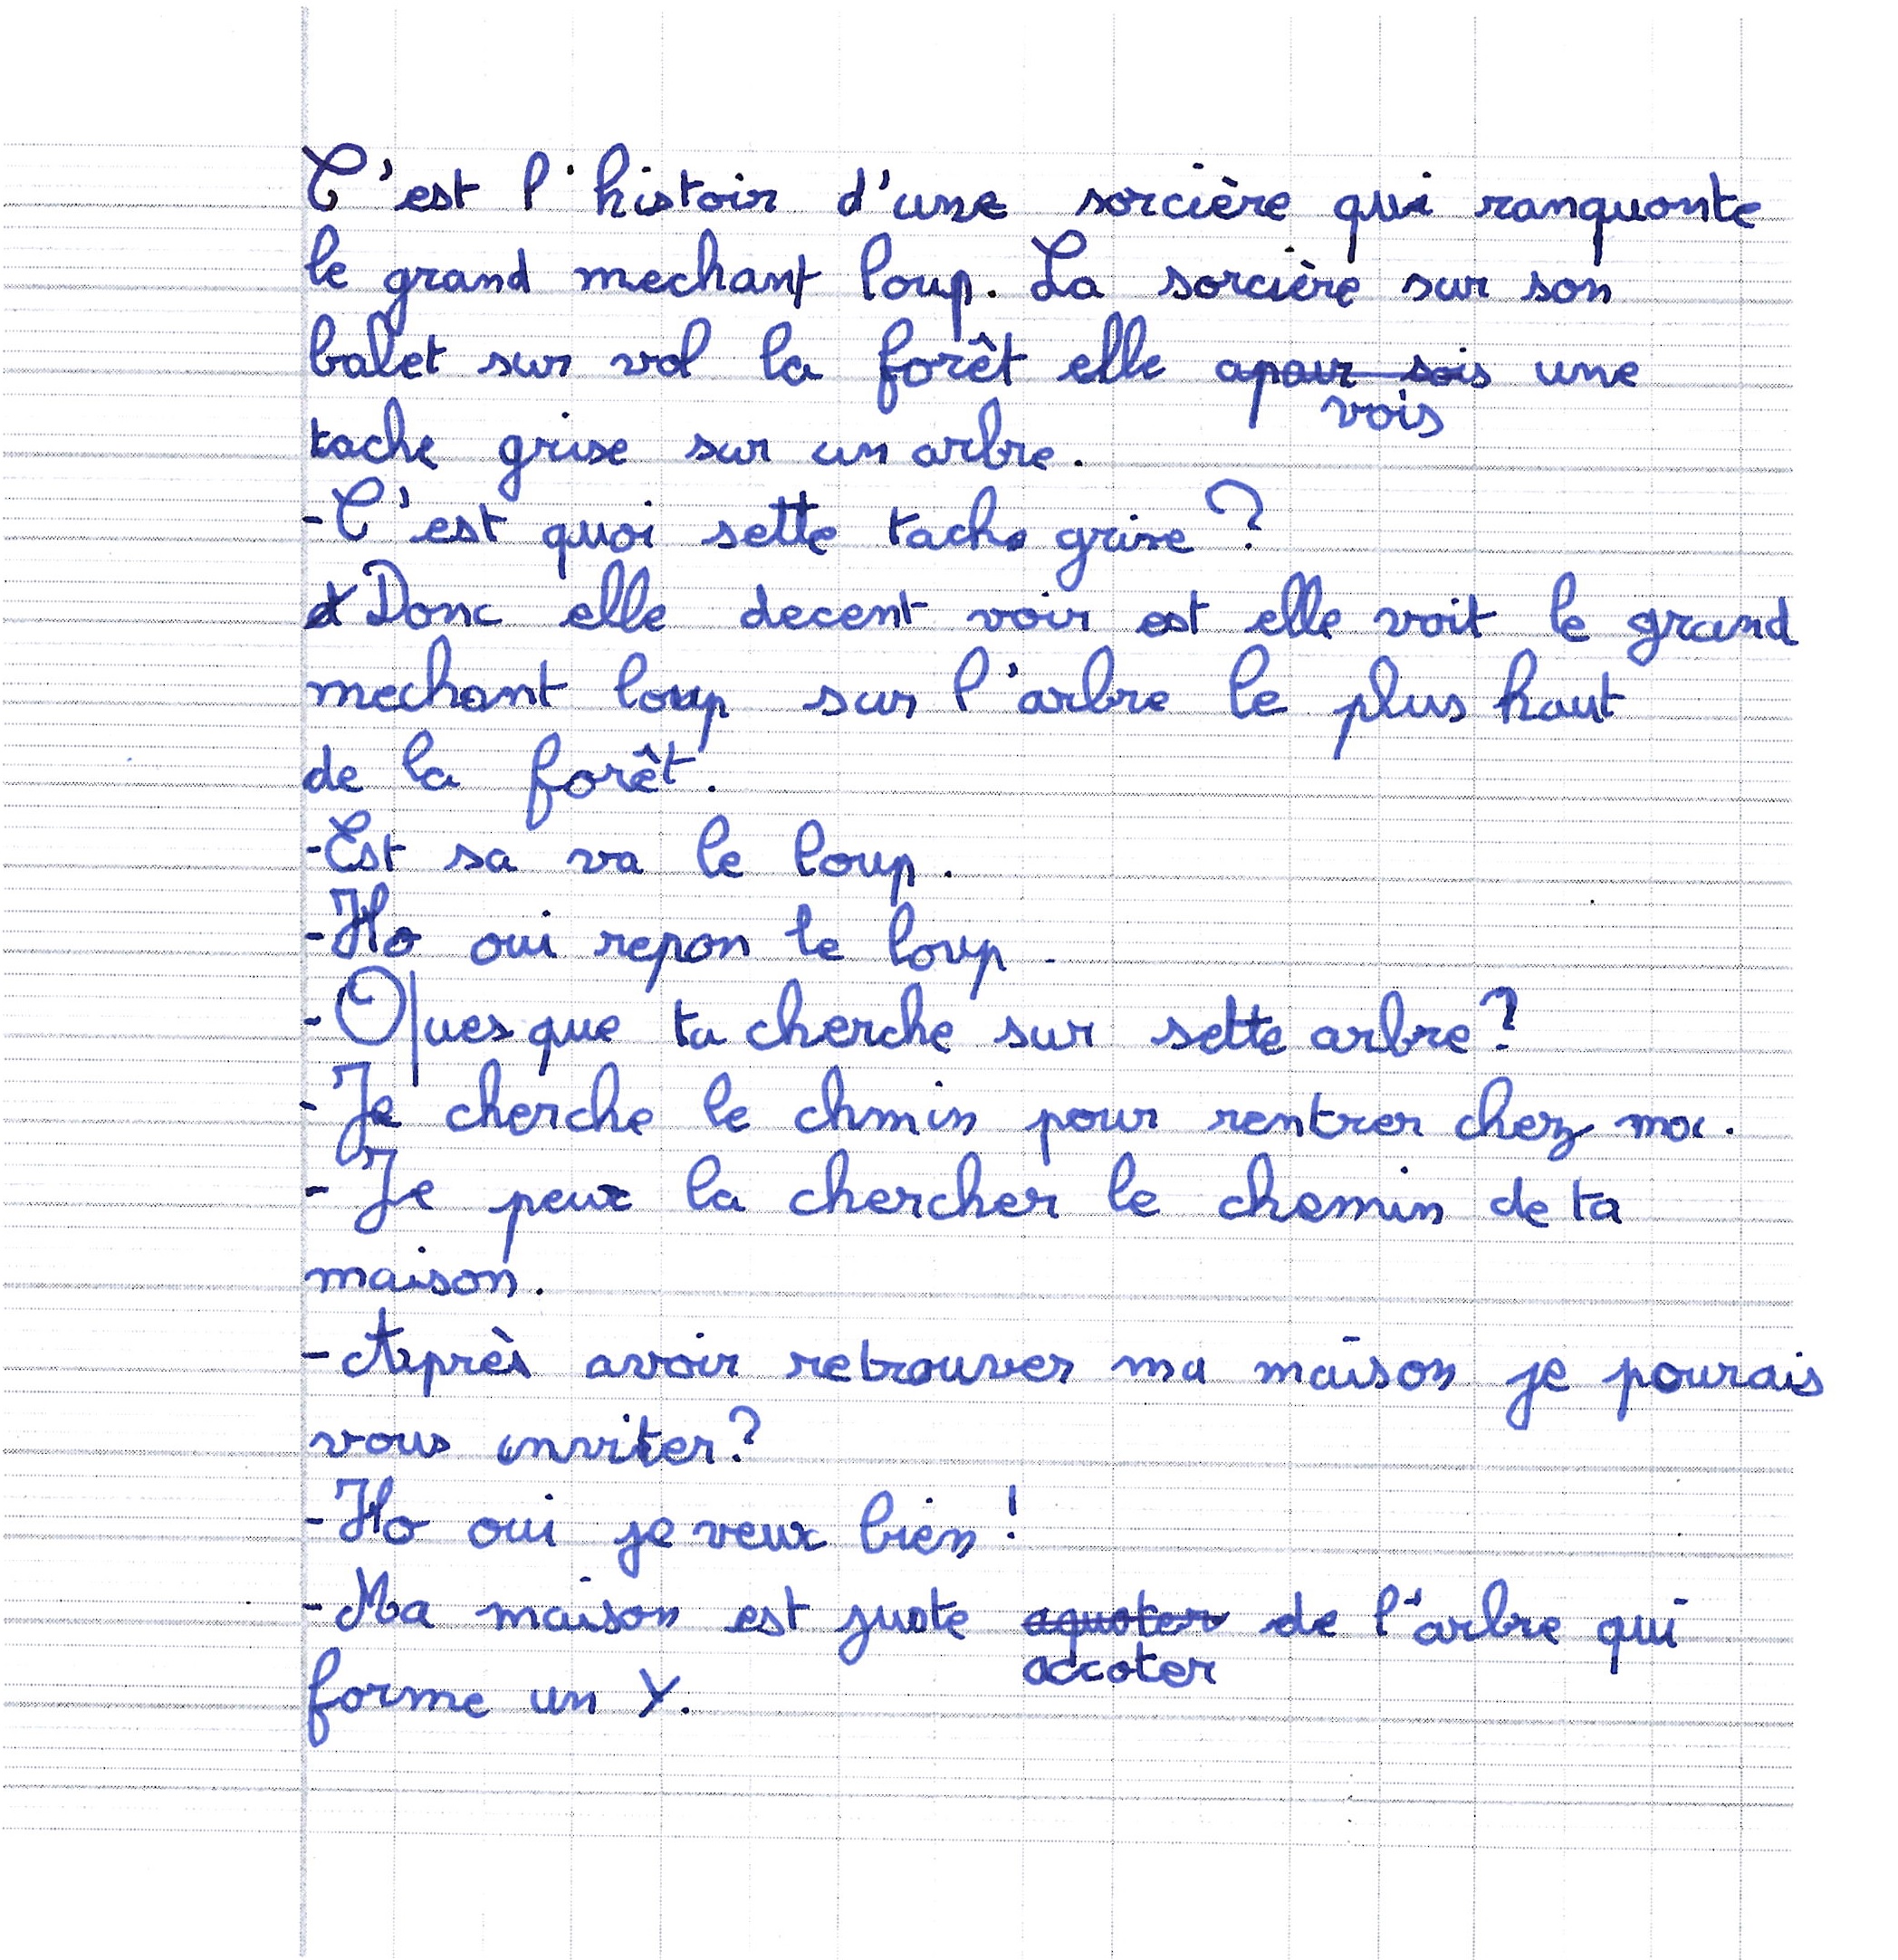 C'est l'histoir d'une sorcière qui ranquonte
le grand mechant loup. La sorcière sur son
balet sur vol la forêt elle apair sois une
vois
tache grise sur un arbre.
-C'est quoi sette tache grise ?
et Donc elle decent voir est elle voit le grand
mechant loup sur l'arbre le plus haut
de la forêt.
-Est sa va le loup.
-Ho oui repon le loup.
-Quesque ta cherche sur sette arbre ?
-Je cherche le chmin pour rentrer chez moi.
-Je peux la chercher le chemin de ta
maison.
-Après avoir retrouver ma maison je pourais
vous inviter ?
-Ho oui je veux bien !
-Ma maison est juste aquoter de l'arbre qui
accoter
forme un Y.